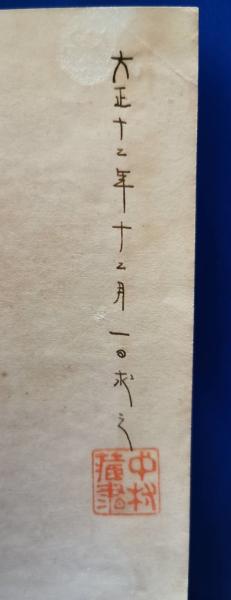 大正十二年十二月一日求之
中村蔵書